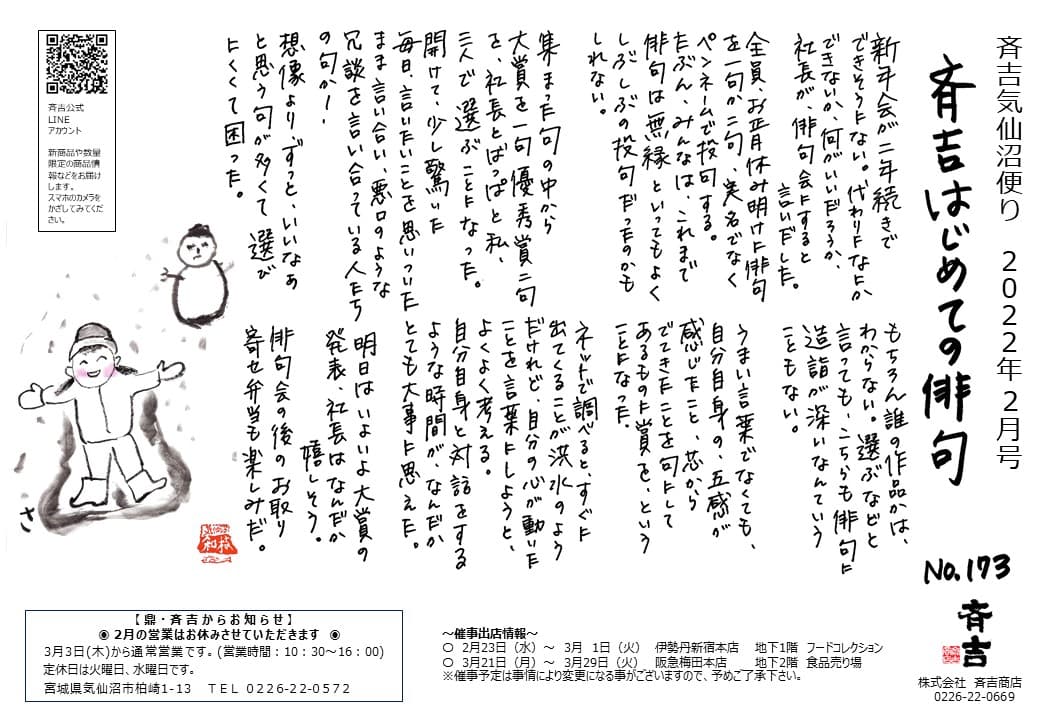 斉吉気仙沼便り 2022年2月号
斉吉はじめての俳句
No.173
斉吉
株式会社 斉吉商店
0226-22-0669
新年会が二年続きで
できそうにない。代わりになにか
できないか、何がいいだろうか、
社長が、俳句会にすると
言いだした。
全員、お正月休み明けに俳句
を一句か二句、実名でなく
ペンネームで投句する。
たぶん、みんなは、これまで
俳句は無縁といってもよく
しぶしぶの投句だったのかも
しれない。
集まった句の中から
大賞を一句優秀賞二句
を、社長とばっぱと私、
三人で選ぶことになった。
開けて、少し驚いた
毎日、言いたいことを思いついた
まま言い合い、悪口のような
冗談を言い合っている人たち
の句か!
想像よりずっと、いいなぁ
と思う句が多くて選び
にくくて困った。
もちろん誰の作品かは、
わからない。選ぶなどと
言っても、こちらも俳句に
造詣が深いなんていう
こともない。
うまい言葉でなくても、
自分自身の、五感が
感じたこと、芯から
でてきたことを句にして
あるものに賞を、という
ことになった。
ネットで調べると、すぐに
出てくることが洪水のよう
だけれど、自分の心が動いた
ことを言葉にしようと、
よくよく考える。
自分自身と対話をする
ような時間が、なんだか
とても大事に思えた。
明日はいよいよ大賞の
発表、社長はなんだか
嬉しそう。
俳句会の後のお取り
寄せ弁当も楽しみだ。
さ
斉吉公式
LINE
アカウント
新商品や数量
限定の商品情
報などをお届け
します。
スマホのカメラを
かざしてみてくだ
さい。
【 鼎・斉吉からお知らせ 】
◉ 2月の営業はお休みさせていただきます ◉
3月3日(木)から通常営業です。(営業時間:10:30～16:00)
定休日は火曜日、水曜日です。
宮城県気仙沼市柏崎1-13 TEL 0226-22-0572
～催事出店情報～
○ 2月23日(水)～ 3月 1日(火) 伊勢丹新宿本店 地下1階 フードコレクション
○ 3月21日(月)～ 3月29日(火) 阪急梅田本店 地下2階 食品売り場
※催事予定は事情により変更になる事がございますので、予めご了承下さい。